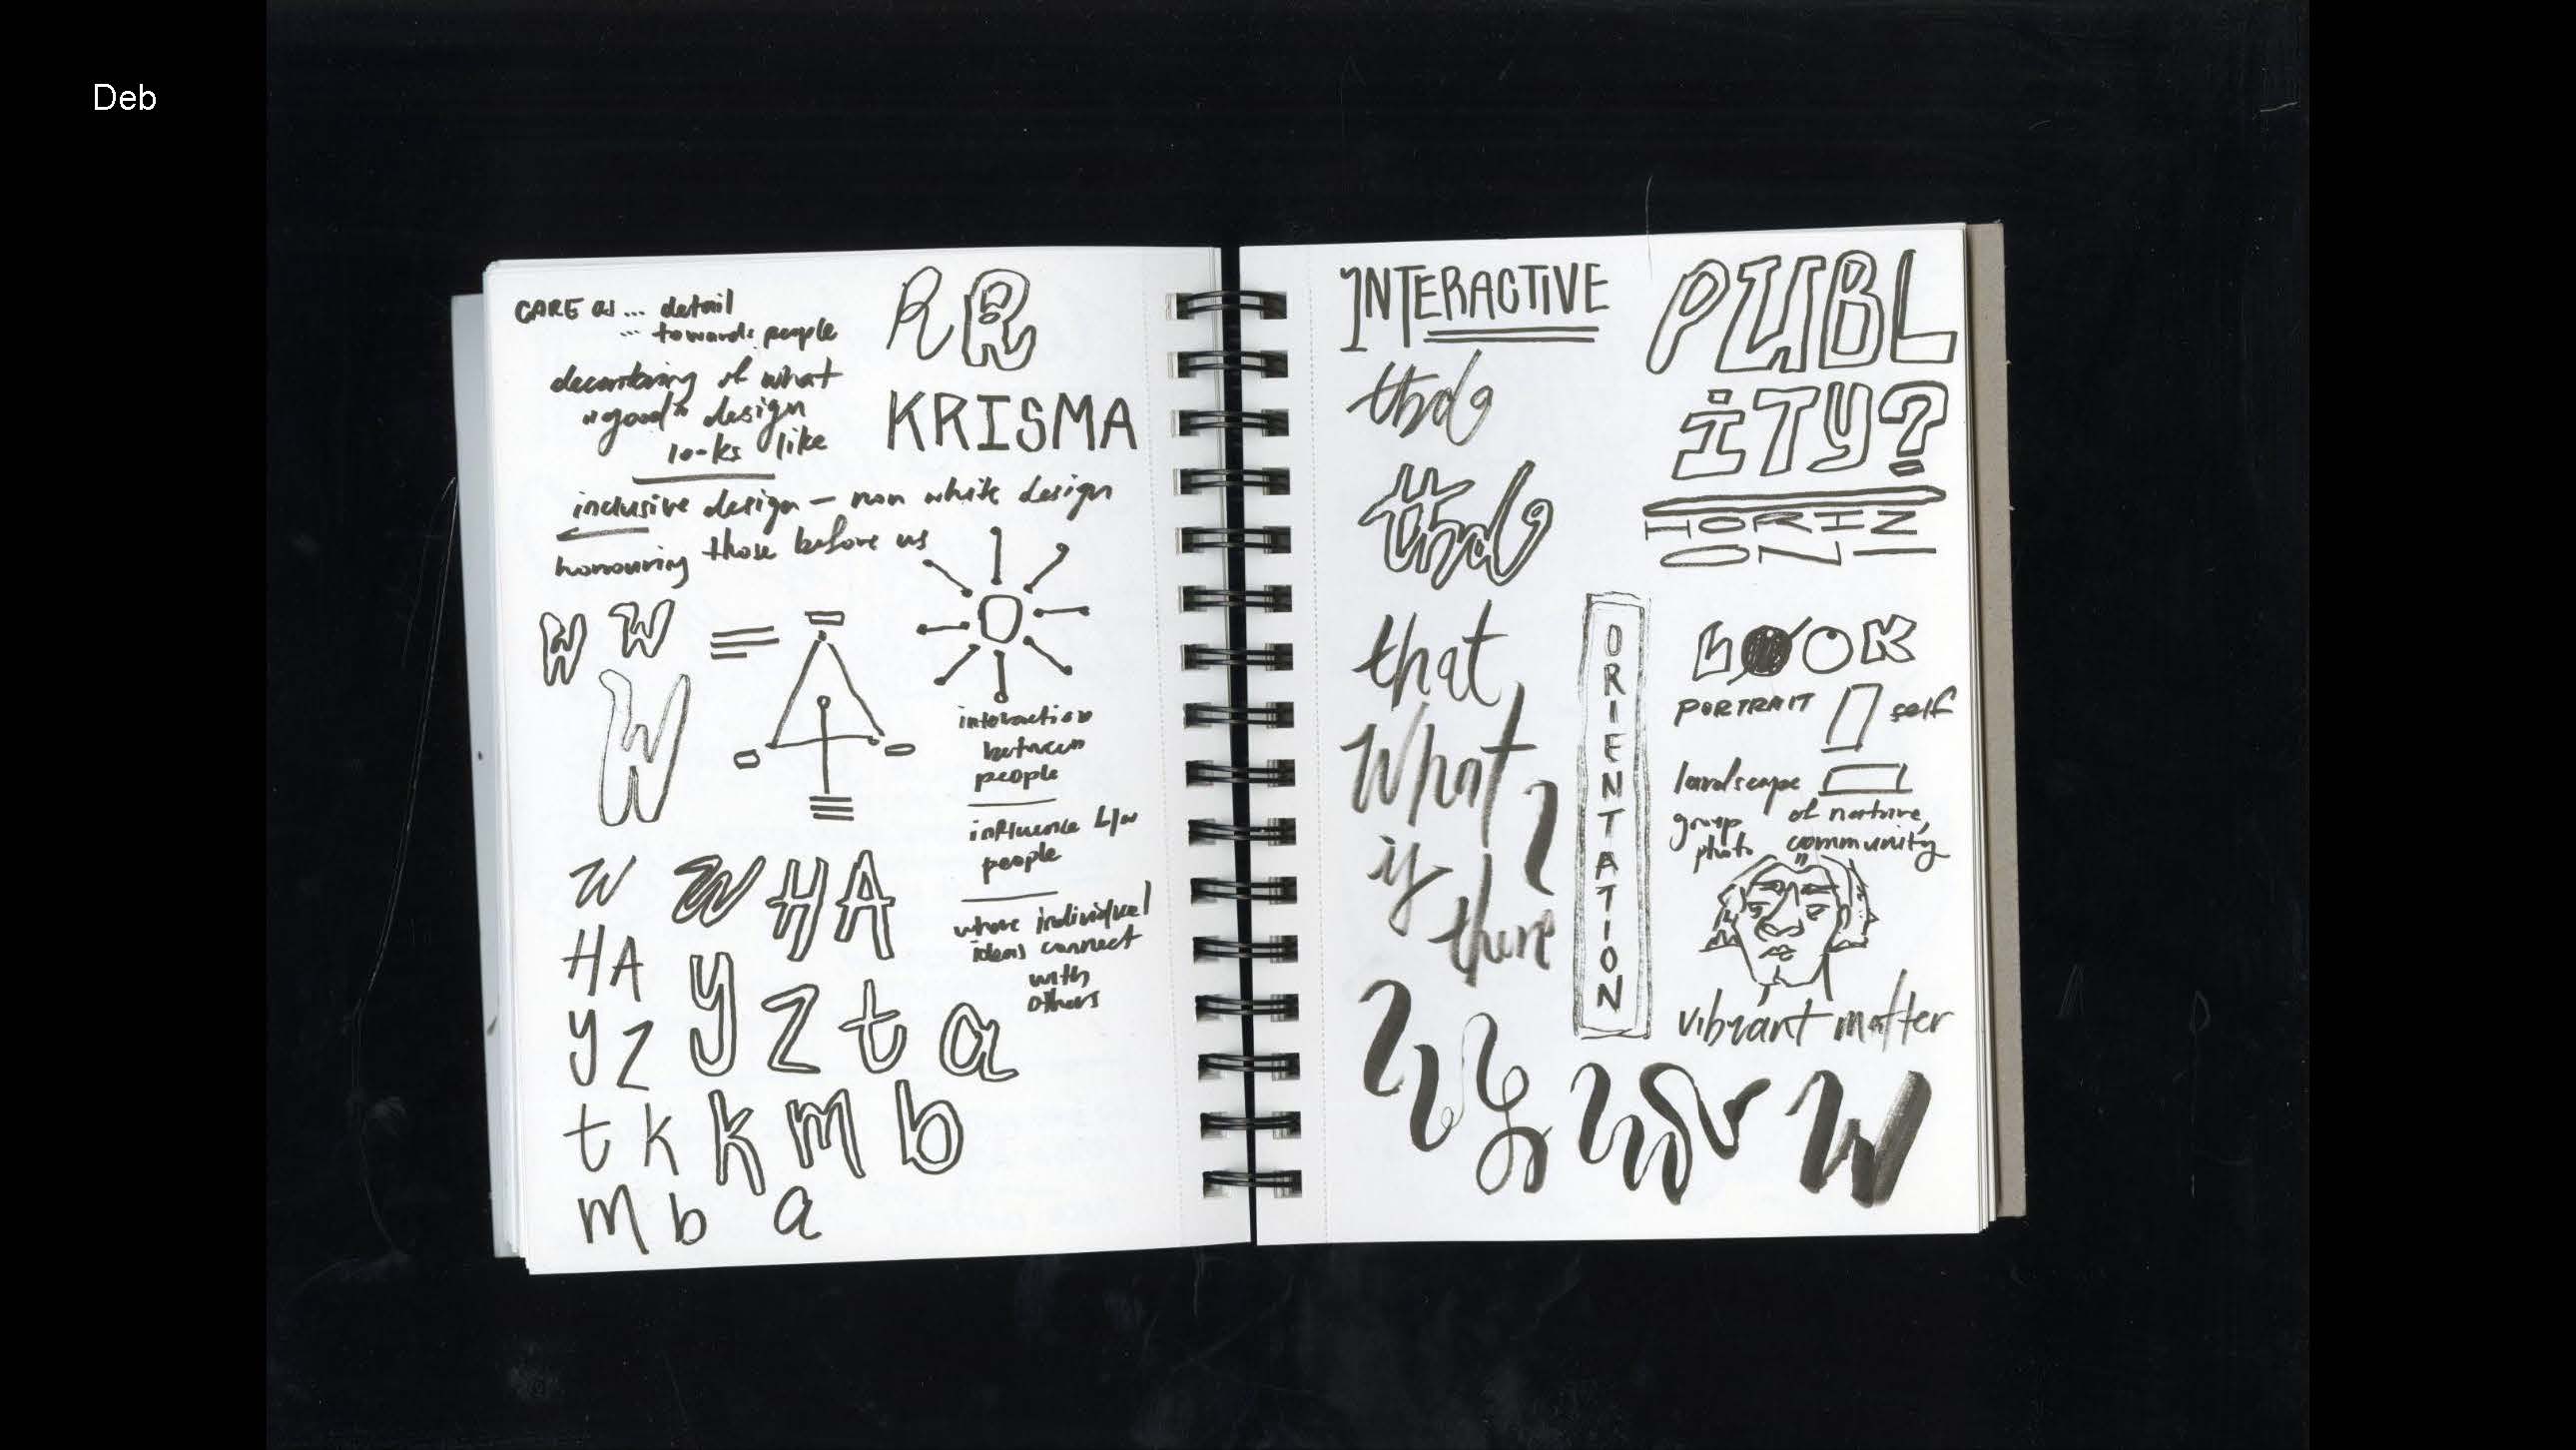 Deb
CARE as... detail
... towards people
R R
of what
"good" design
looks like
KRISMA
inclusive design — non white design
honouring those before us
W W
W
interaction
between
people
influence b/w
people
where individual
ideas connect
with
others
W W HA
HA
y z y z t a
t k k m b
m b a
INTERACTIVE
tbd
tbd
that
what
if
there
?
ORIENTATION
PUBL
iTY?
HORIZ
ON —
BOOK
PORTRAIT self
landscape
of nature,
group community
photo
vibrant matter
W